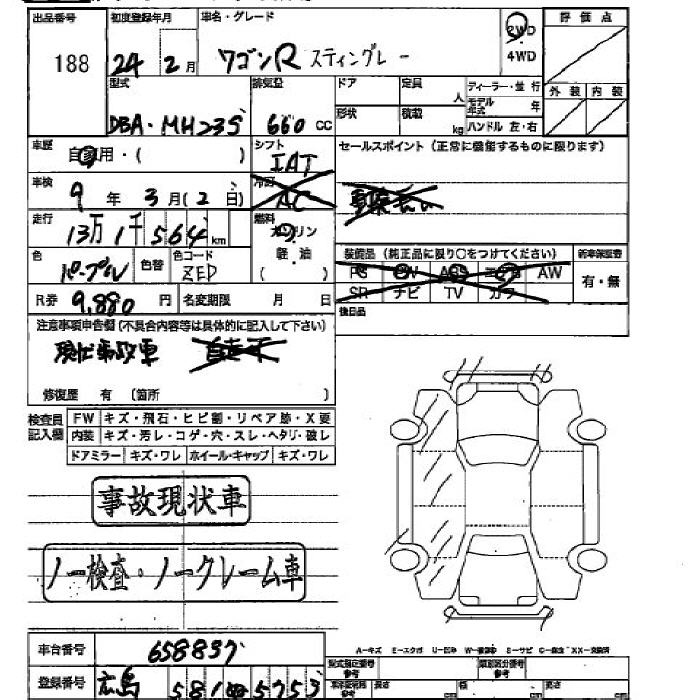 出品番号 初度登録年月 車名・グレード 評価点
188 24年 2月 ワゴンR スティングレー 2WD 4WD
型式 排気量 ドア 定員 人 ディーラー・並行 外装 内装
DBA・MH23S 660 CC 形状 積載 kg モデル年式 年 ハンドル 左・右
車歴 自家用・( ) シフト IAT セールスポイント(正常に機能するものに限ります)
車検 9年 3月(2日) 冷房 AC
走行 13万1千564km 燃料 ガソリン 軽・油 ( )
装備品(純正品に限り○をつけてください) 新車保証書
色 パープル 色替 色コード ZED
PS PW ABS エアB AW 有・無
SR ナビ TV カワ
R券 9,880円 名変期限 月 日 後日品
注意事項申告欄(不具合内容等は具体的に記入して下さい)
現状事故車
修復歴 有(箇所 )
検査員記入欄 FW キズ・飛石・ヒビ割・リペア跡・X要
内装 キズ・汚レ・コゲ・穴・スレ・ヘタリ・破レ
ドアミラー キズ・ワレ ホイール・キャップ キズ・ワレ
事故現状車
ノー検査・ノークレーム車
車台番号 658837
A-キズ E-エクボ U-凹み S-サビ XX-交換済
型式指定番号 参考 類別区分番号 参考
登録番号 広島 581 5753
長さ cm 幅 cm 高さ cm